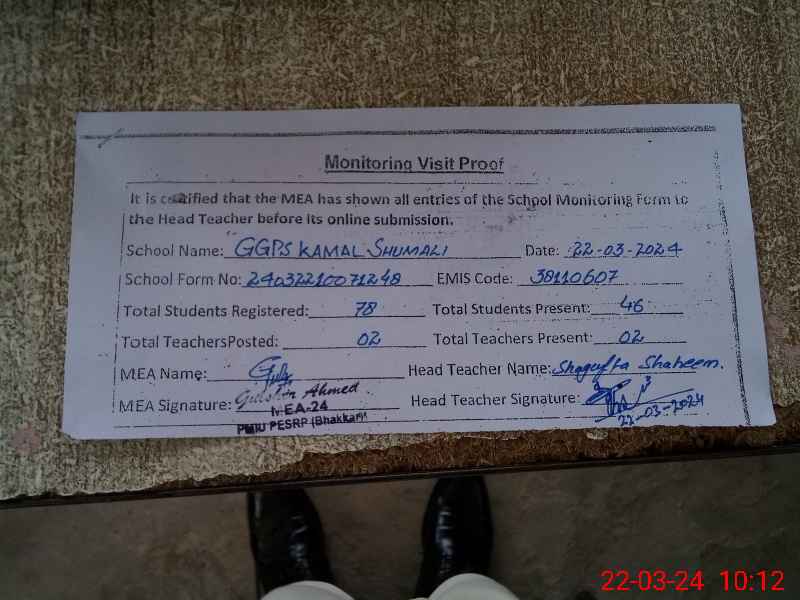 Monitoring Visit Proof
It is certified that the MEA has shown all entries of the School Monitoring Form to
the Head Teacher before its online submission.
School Name: GGPS KAMAL SHUMALI Date: 22-03-2024
School Form No: 24032210071248 EMIS Code: 38110607
Total Students Registered: 78 Total Students Present: 46
Total TeachersPosted: 02 Total Teachers Present: 02
MEA Name: Head Teacher Name: Shagufta Shaheem.
MEA Signature: Gulshan Ahmed Head Teacher Signature:
MEA-24
PMIU PESRP (Bhakkar)
22-03-2024
22-03-24 10:12